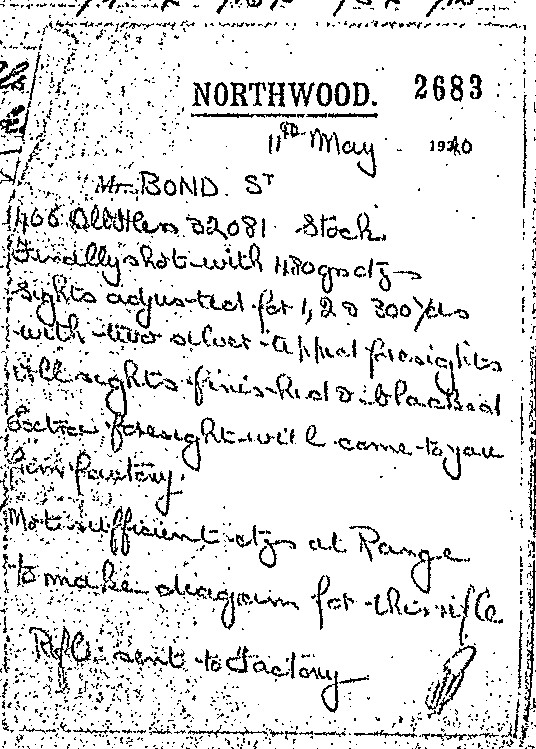 NORTHWOOD. 2683
11th May 1940
Mr. BOND. ST
32081 Stock.
Finally shot with 480grs ctgs
sights adjusted for 1, 2 & 300 yds
with two silver tipped foresights
All sights finished & blacked
Extra foresight will come to you
from factory.
Not sufficient ctgs at Range
to make diagram for this rifle
Rifle sent to Factory